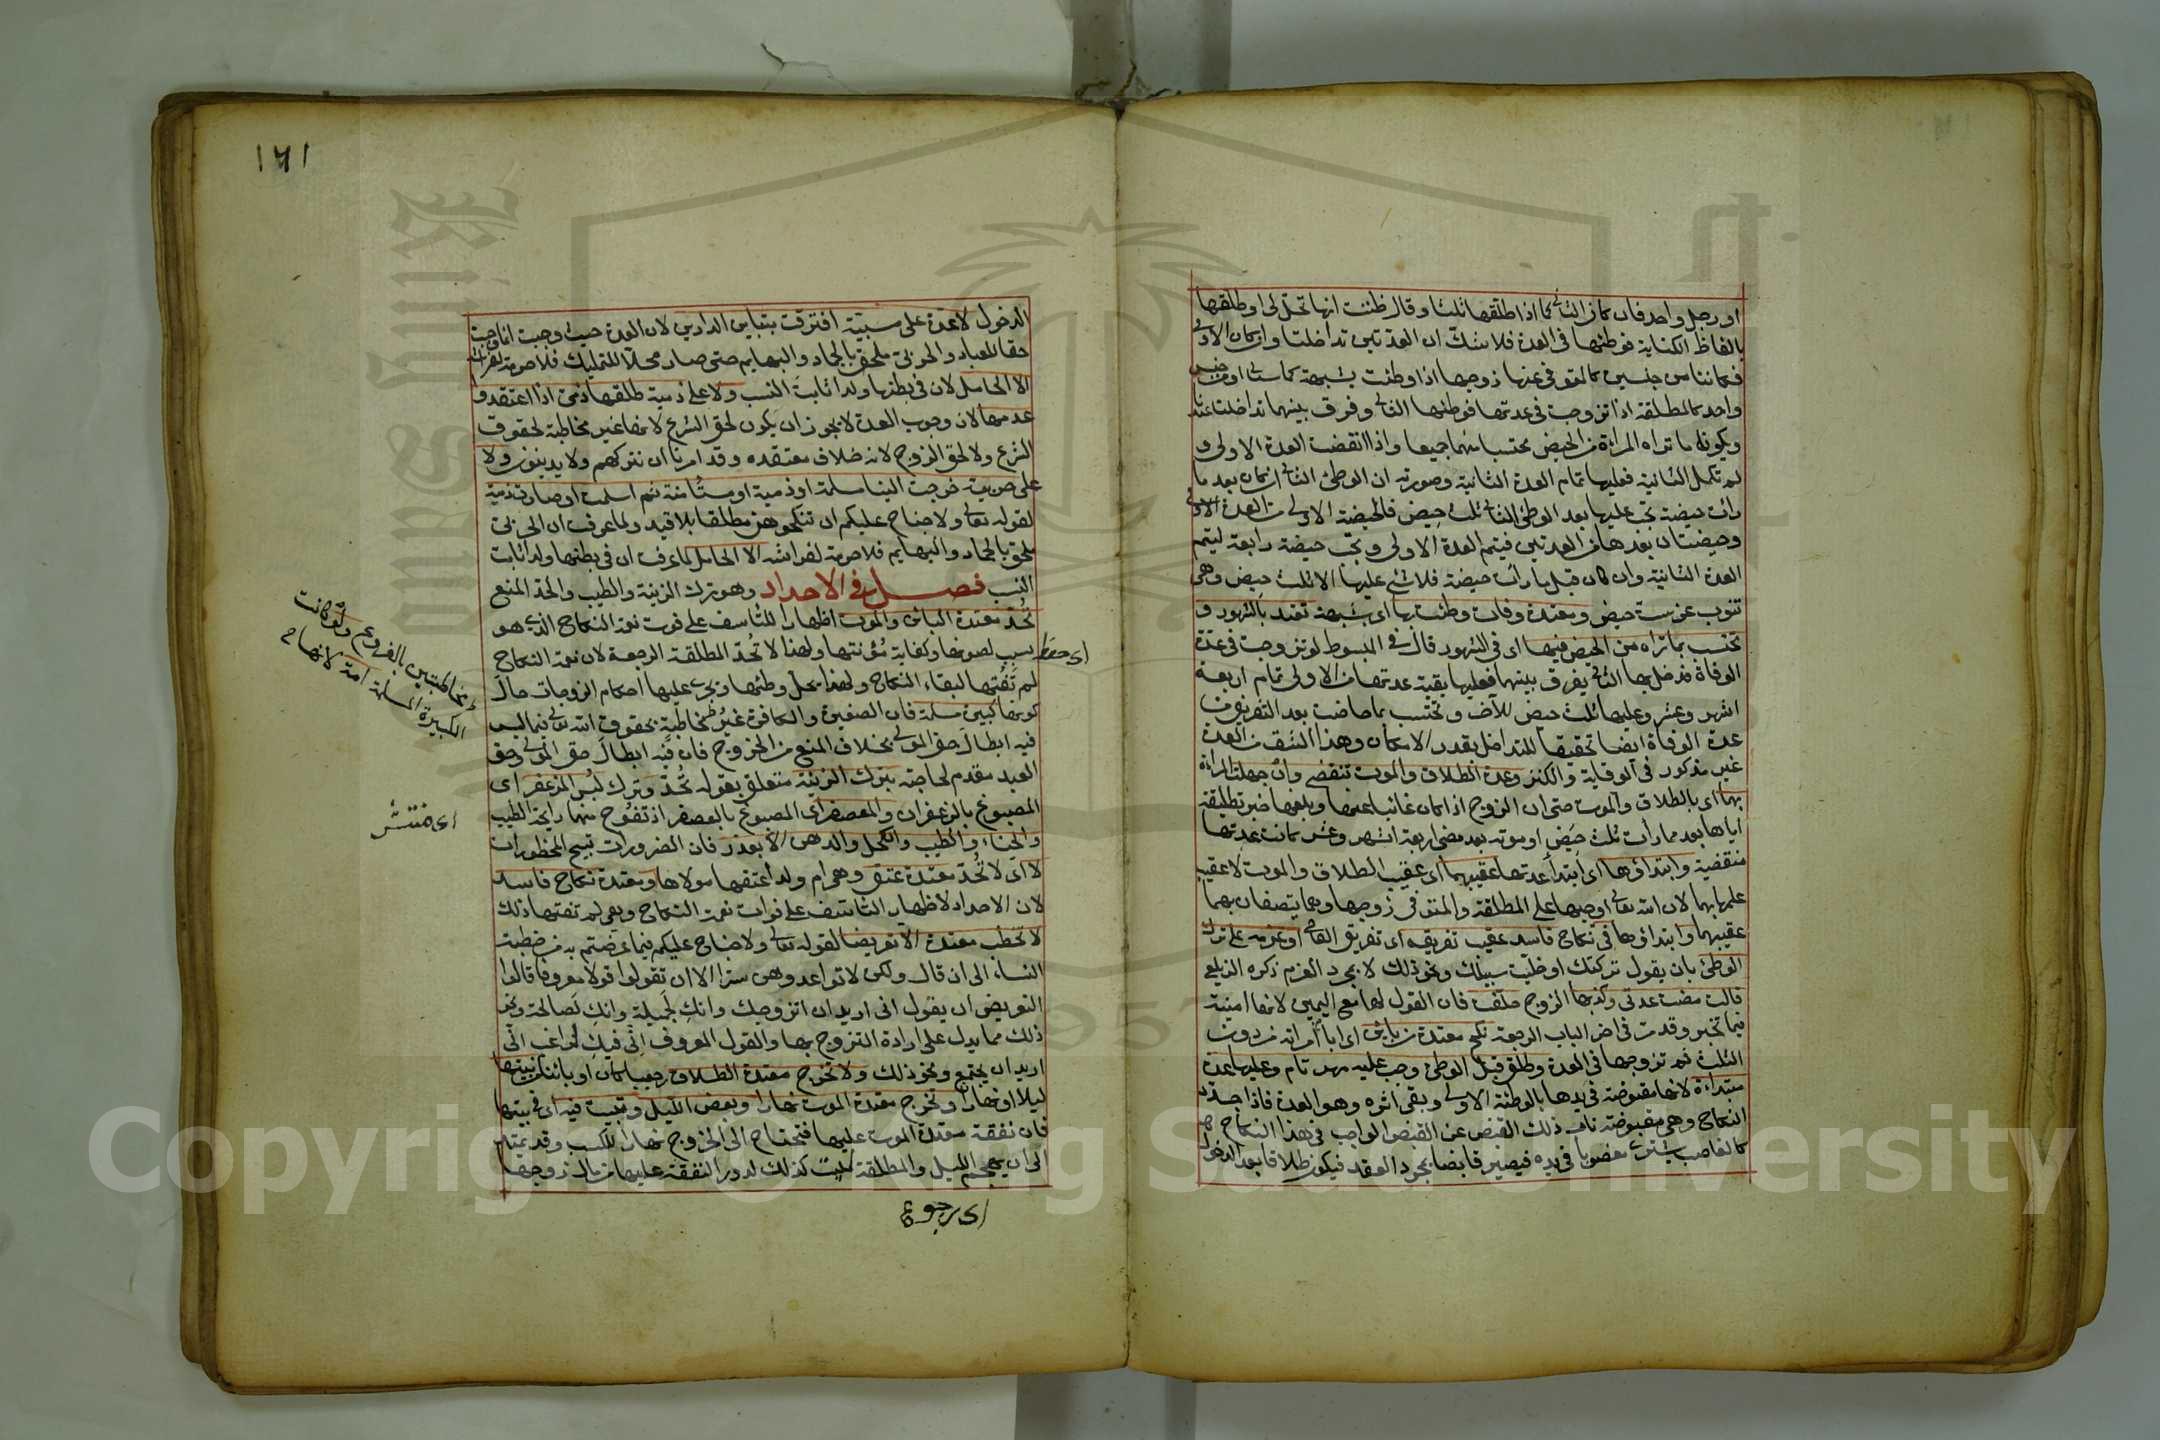 او رجل واحد فان كان الثاني كما اذا طلقها ثلثا وقال ظننت انها تحل لي او طلقها
بالفاظ الكناية فوطئها في العدة فلا شك ان العدتين تداخلتا وان كان الاول
فكانتا من جنسين كالمتوفى عنها زوجها اذا وطئت بشبهة كما سياتي او من جنس
واحد كالمطلقة اذا تزوجت في عدتها فوطئها الثاني وفرق بينهما تداخلتا عندنا
ويكون ما تراه المراة من الحيض محتسبا منهما جميعا واذا انقضت العدة الاولى و
لم تكمل الثانية فعليها تمام العدة الثانية وصورته ان الوطئ الثاني ان كان بعد ما
رات حيضة تجب عليها بعد الوطئ الثاني ثلث حيض فالحيضة الاولى من العدة الاولى
وحيضتان بعدها من العدتين فيتم العدة الاولى وتجب حيضة رابعة ليتم
العدة الثانية وان كان قبل ما رات حيضة فلا شئ عليها الا ثلث حيض وهي
تنوب عن ست حيض ومعتدة وفات وطئت بها اي شبهة تعتد بالشهور و
تحتسب بما تراه من الحيض فيها اي في الشهور قال في المبسوط لو تزوجت في عدة
الوفاة فدخل بها الثاني يفرق بينهما فعليها بقية عدتها من الاولى تمام اربعة
اشهر وعشر وعليها ثلث حيض للآخر وتحتسب بما حاضت بعد التفريق من
عدة الوفاة ايضا تحقيقا للتداخل بقدر الامكان وهذا الشق من العدة
غير مذكور في الوقاية والكنز وعدة الطلاق والموت تنقضي وان جهلت المراة
بهما اي بالطلاق والموت حتى ان الزوج اذا كان غائبا عنها وبلغها خبر تطليقه
اياها بعد ما رات ثلث حيض او موته بعد مضي اربعة اشهر وعشر كانت عدتها
منقضية وابتداؤها اي ابتدا عدتها عقيبهما اي عقيب الطلاق والموت لا عقيب
علمها بهما لان الله تعالى اوجبها على المطلقة والمتوفى زوجها وهما يتصفان بهما
عقيبهما وابتداؤها في نكاح فاسد عقيب تفريقه اي تفريق القاضي او عزمه على ترك
الوطئ بان يقول تركتك او خليت سبيلك ونحو ذلك لا بمجرد العزم ذكره الزيلعي
قالت مضت عدتي وكذبها الزوج حلفت فان القول لها مع اليمين لانها امينة
فيما تخبر وقد مر في اخر الباب الرجعة نكح معتدة من باين اي ابان امراته من دون
الثلث ثم تزوجها في العدة وطلق قبل الوطئ وجب عليه مهر تام وعليها عدة
مبتداءة لانها مقبوضة في يدها بالوطئة الاولى وبقي اثره وهو العدة فاذا جدد
النكاح وهي مقبوضة ناب ذلك القبض عن القبض الواجب في هذا النكاح
كالغاصب يشتري مغصوبا في يده فيصير قابضا بمجرد العقد فيكون طلاقا بعد الدخول
١٦١
الدخول لا عدة على مسبية افترقت بتباين الدارين لان العدة حيث وجبت انما وجبت
حقا للعباد والحربي ملحق بالجماد والبهايم حتى صار محلا للتمليك فلا حرمة لفراشه
الا الحامل لان في بطنها ولدا ثابت النسب ولا على ذمية طلقها ذمي اذا اعتقدو
عدمها لان وجوب العدة لا يجوز ان يكون لحق الشرع لانها غير مخاطبة لحقوق
الشرع ولا لحق الزوج لانه خلاف معتقده وقد امرنا ان نتركهم ولا يدينون ولا
على حربية خرجت الينا مسلمة او ذمية او مستأمنة ثم اسلمت او صارت ذمية
لقوله تعالى ولا جناح عليكم ان تنكحوهن مطلقا بلا قيد ولما عرف ان الحربي
ملحق بالجماد والبهايم فلا حرمة لفراشه الا الحامل لما عرف ان في بطنها ولدا ثابت
النسب فصل في الاحداد وهو ترك الزينة والطيب والحد المنع
تحد معتدة البائن والموت اظهارا للتاسف على فوت نعمة النكاح الذي هو
سبب لصونها وكفاية مؤنتها ولهذا لا تحد المطلقة الرجعة لان نعمة النكاح
اي حفظ
لم تفتها لبقاء النكاح ولهذا يحل وطئها وتجري عليها احكام الزوجات حال
كونها كبيرة مسلمة فان الصغيرة والكافرة غير مخاطبة بحقوق الله تعالى فيما ليس
فيه ابطال حق المولى بخلاف المنع من الخروج فان فيه ابطال حق المولى وحق
العبد مقدم لحاجته بترك الزينة متعلق بقوله تحد وترك لبس المزعفر اي
المصبوغ بالزعفران والمعصفر اي المصبوغ بالعصفر اذ تفوح منهما رايحة الطيب
والحناء والطيب والكحل والدهن الا بعذر فان الضرورات تبيح المحظورات
لا اي لا تحد معتدة عتق وهي ام ولد اعتقها مولاها ومعتدة نكاح فاسد
لان الاحداد لاظهار التاسف على فوات نعمة النكاح وهي لم تفتها ذلك
لا تخطب معتدة الا تعريضا لقوله تعالى ولا جناح عليكم فيما عرضتم به من خطبة
النساء الى ان قال ولكن لا تواعدوهن سرا الا ان تقولوا قولا معروفا قالوا
التعريض ان يقول اني اريد ان اتزوجك وانك لجميلة وانك لصالحة ونحو
ذلك مما يدل على ارادة التزوج بها والقول المعروف اني فيك لراغب اني
اريد ان يجتمع ونحو ذلك ولا تخرج معتدة الطلاق رجعيا كان او بائنا من بيتها
ليلا او نهارا وتخرج معتدة الموت نهارا وبعض الليل وتبيت فيه اي في بيتها
فان نفقة معتدة الموت عليها فتحتاج الى الخروج نهارا للكسب وقد يمتد
الى ان يهجم الليل والمطلقة ليست كذلك لدرور النفقة عليها من مال زوجها
مخاطبتين بالفروع ولو كانت
الكبيرة المسلمة امة لانها
اي منتشر
اي رجوع
Copyright © King Saud University